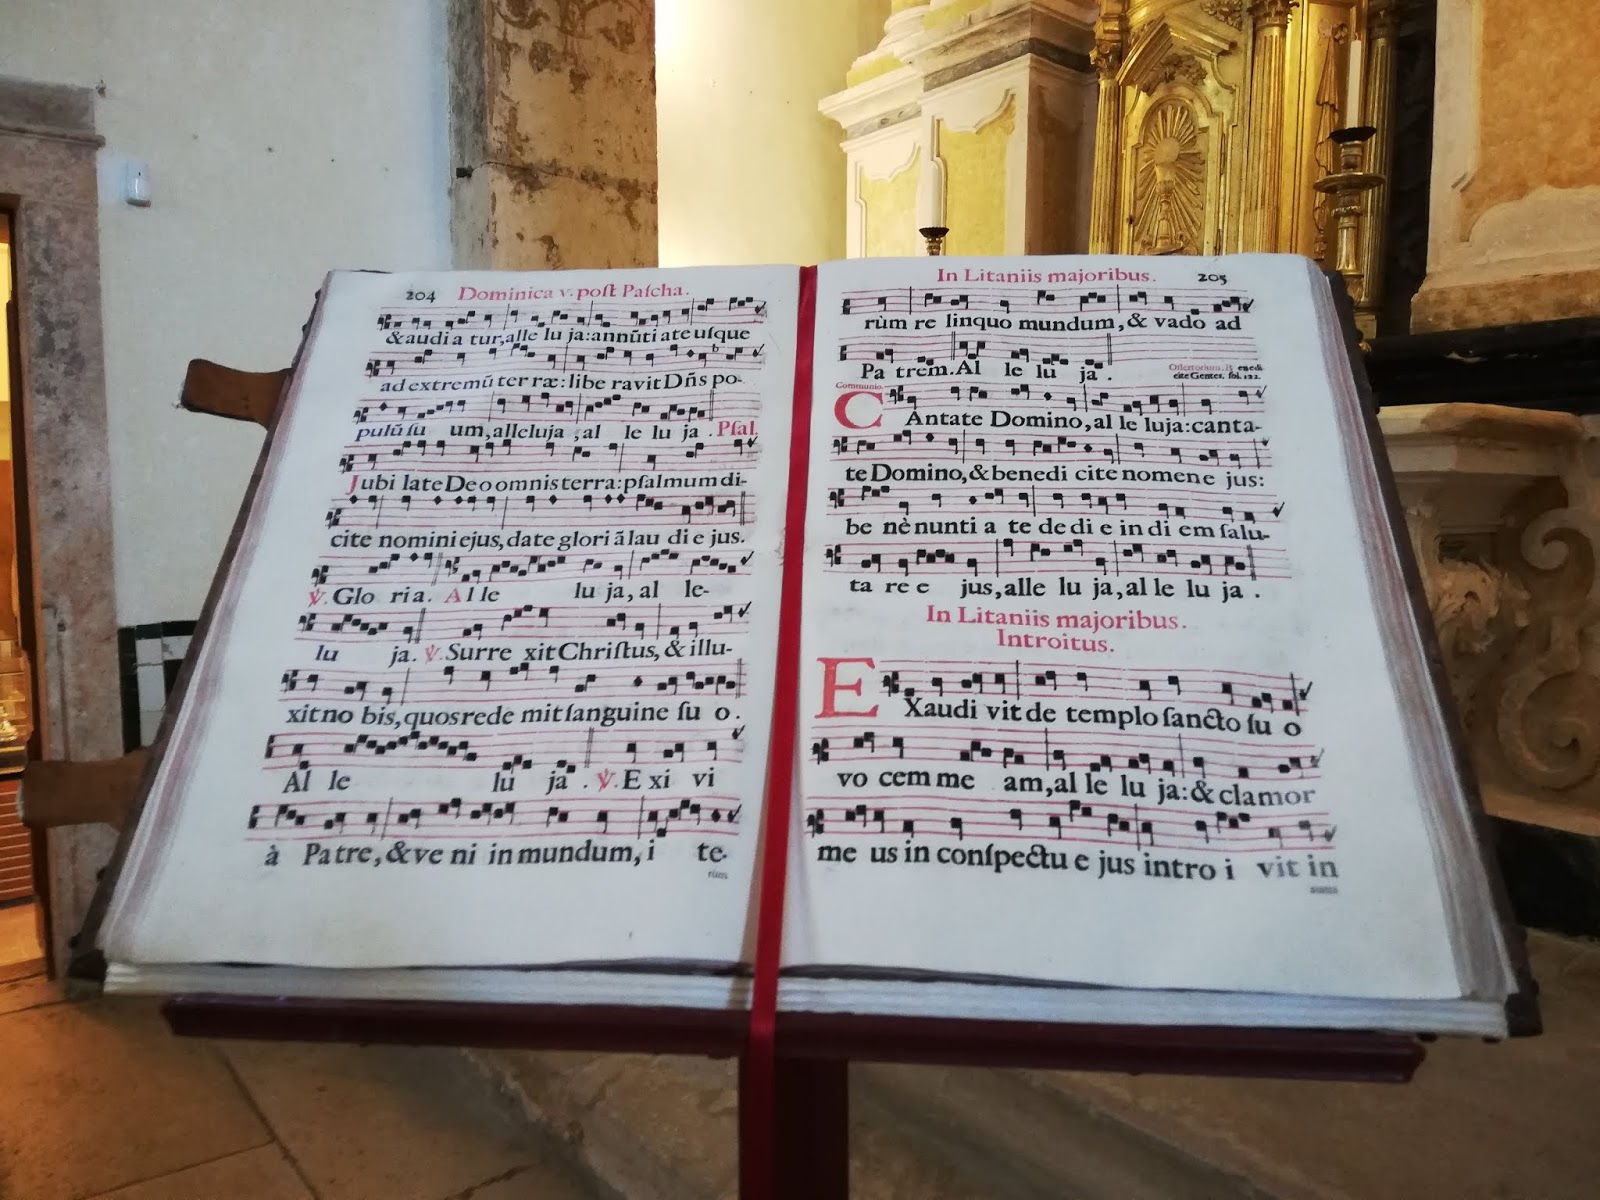 204 Dominica v. poſt Paſcha.
& audi a tur, alle lu ja: annũti ate uſque
ad extremũ ter ræ: libe ravit Dñs po-
pulũ ſu um, alleluja, al le lu ja. Pſal.
Jubi late Deo omnis terra: pſalmum di-
cite nomini ejus, date glori ã lau di e jus.
℣. Glo ri a. Al le lu ja, al le-
lu ja. ℣. Surre xit Chriſtus, & illu-
xit no bis, quos rede mit ſanguine ſu o.
Al le lu ja. ℣. E xi vi
à Patre, & ve ni in mundum, i te-
rùm
In Litaniis majoribus. 205
rùm re linquo mundum, & vado ad
Pa trem. Al le lu ja.
Communio.
CAntate Domino, al le luja: canta-
te Domino, & benedi cite nomen e jus:
be nè nunti a te de di e in di em ſalu-
ta re e jus, alle lu ja, al le lu ja.
In Litaniis majoribus.
Introitus.
EXaudi vit de templo ſancto ſu o
vo cem me am, al le lu ja: & clamor
me us in conſpectu e jus intro i vit in